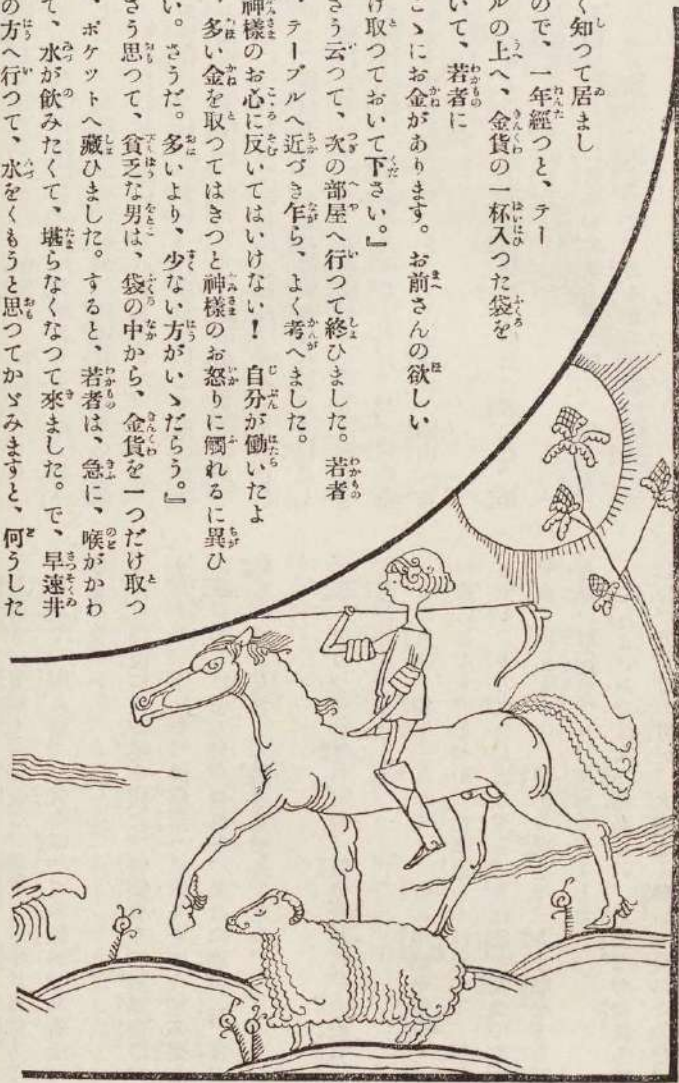 く知つて居まし
ので、一年經つと、テー
ルの上へ、金貨の一杯入つた袋を
いて、若者に
こゝにお金があります。お前さんの欲しい
け取つておいて下さい。』
さう云つて、次の部屋へ行つて終ひました。若者
、テーブルへ近づき乍ら、よく考へました。
神樣のお心に反いてはいけない！　自分が働いたよ
、多い金を取つてはきつと神樣のお怒りに觸れるに異ひ
い。さうだ。多いより、少ない方がいゝだらう。』
さう思つて、貧乏な男は、袋の中から、金貨を一つだけ取つ
、ポケツトへ藏ひました。すると、若者は、急に、喉がかわ
て、水が飮みたくて、堪らなくなつて來ました。で、早速井
の方へ行つて、水をくもうと思つてかゞみますと、何うした